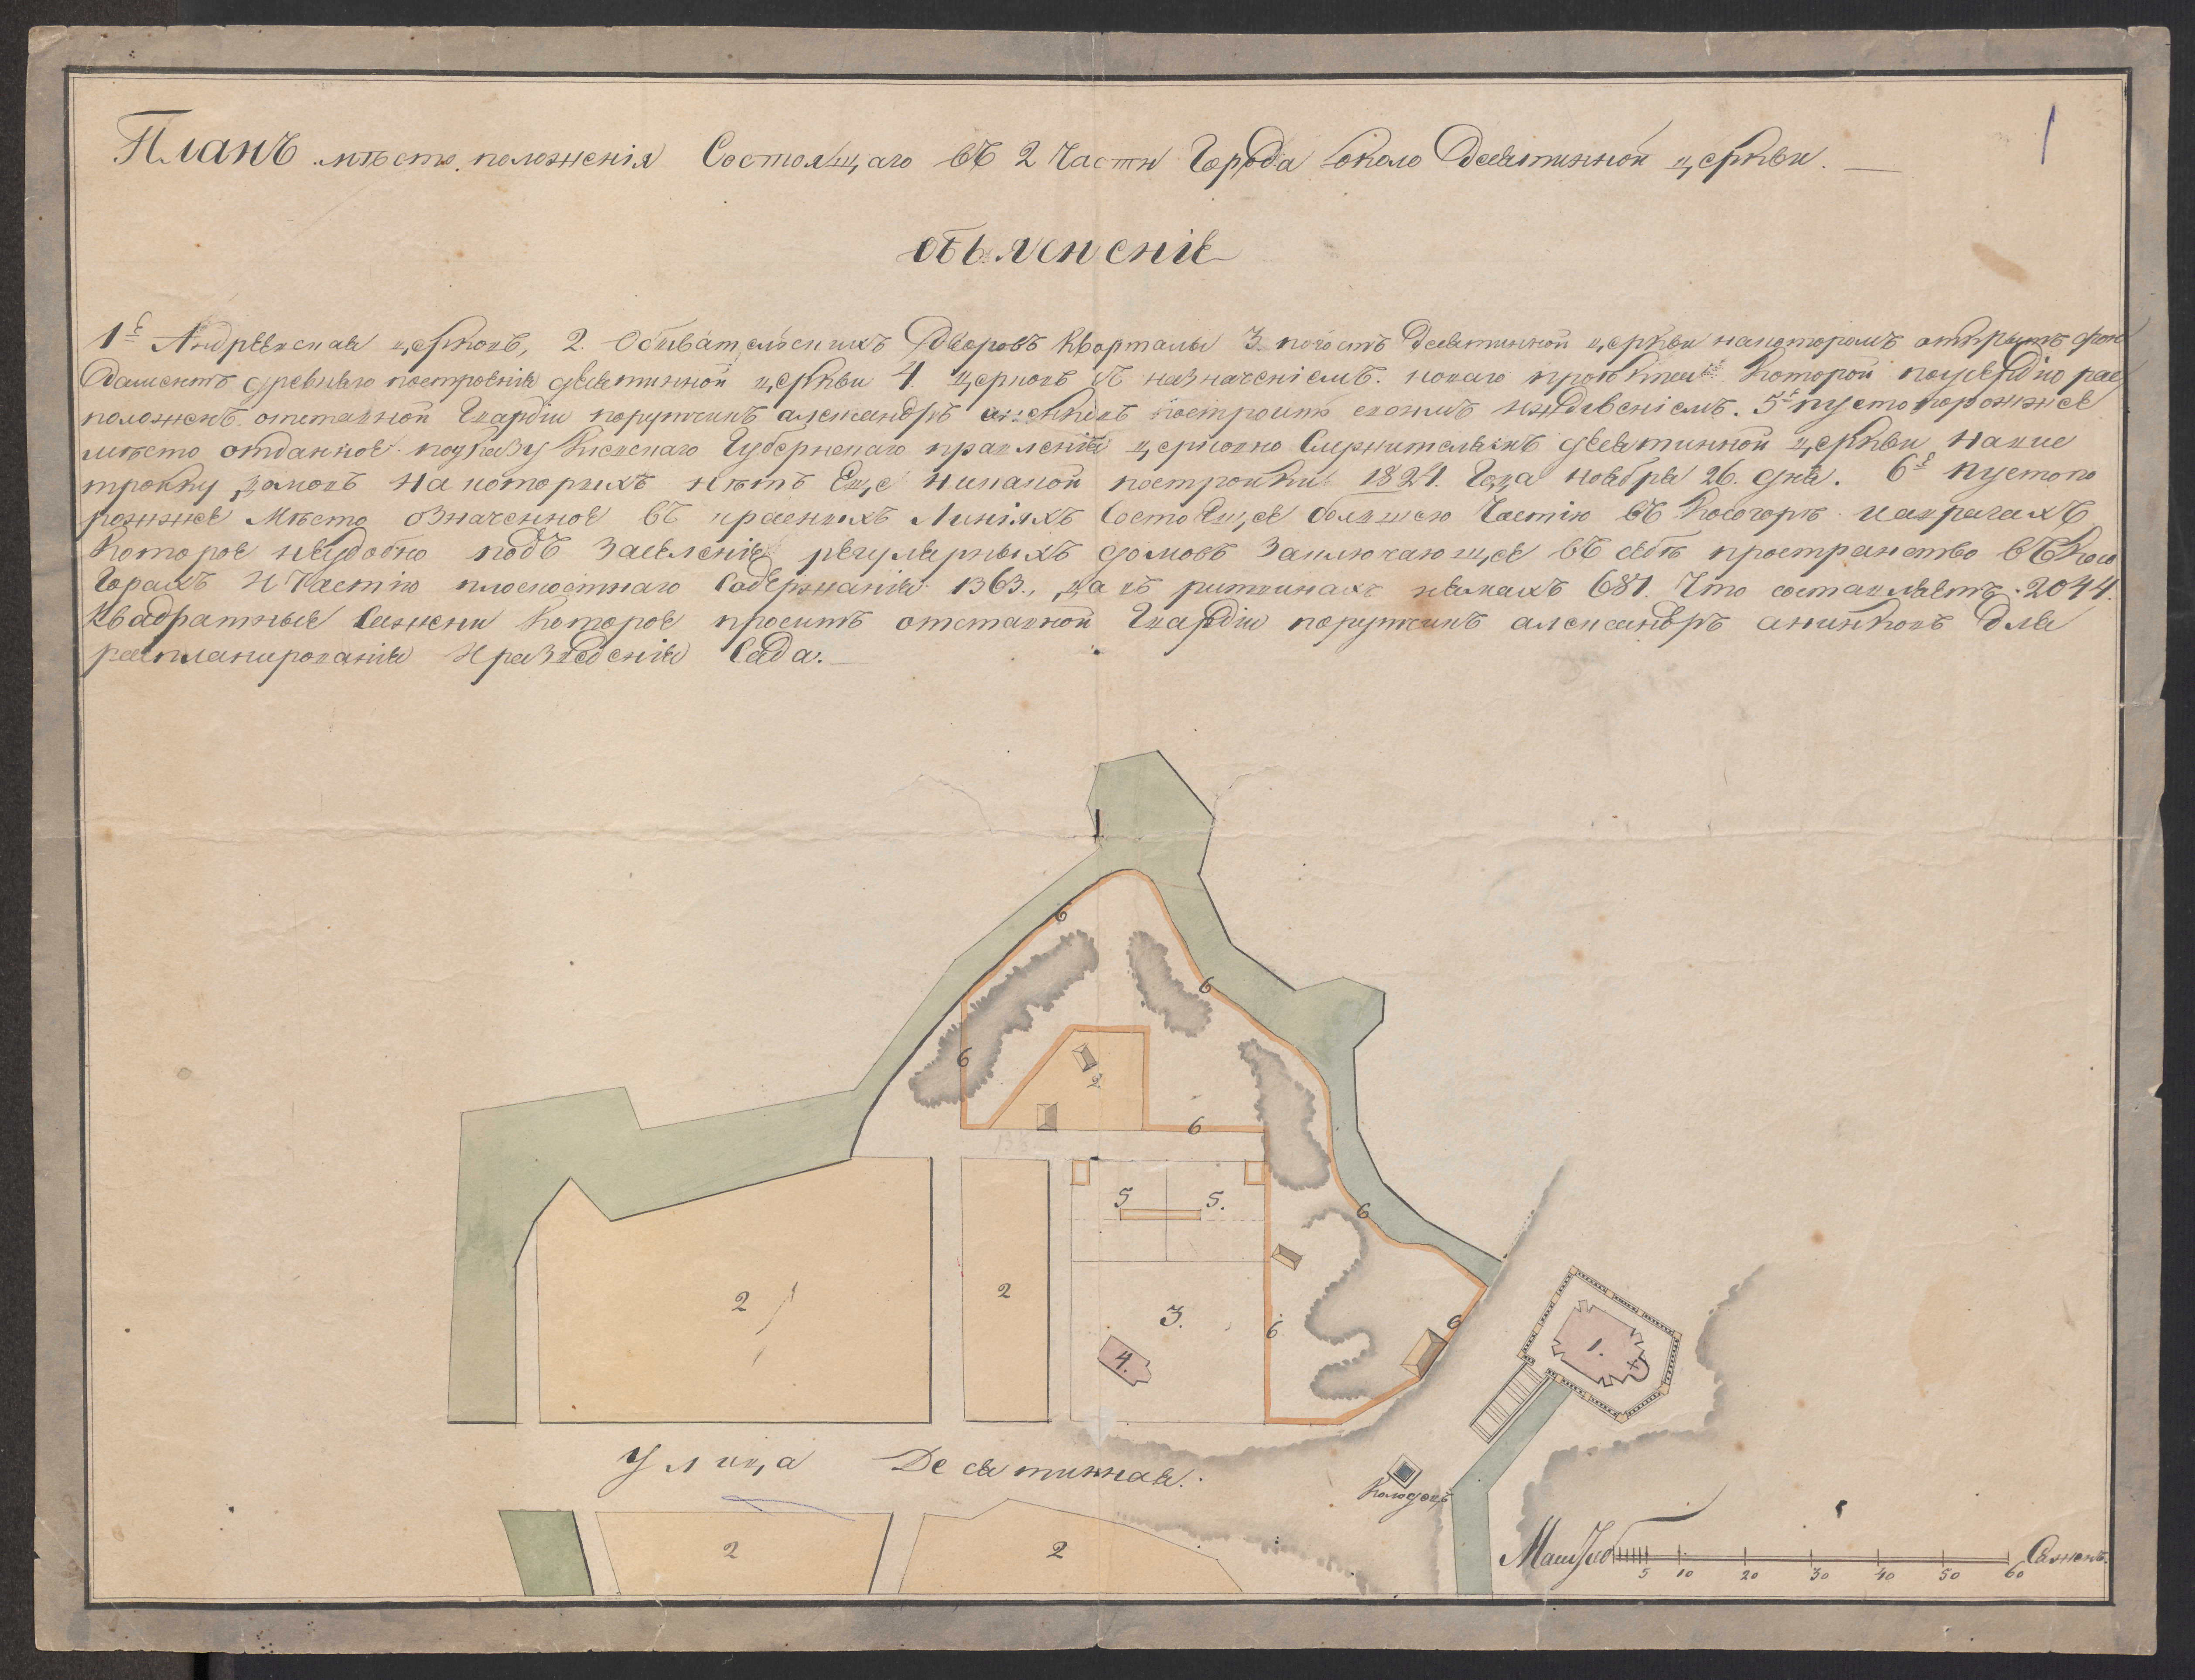 Планъ мѣсто положенія Состоящаго въ 2 Части Города около Десятинной церкви.
1
объясненіе
1е Андреевская церковь, 2. Обывательскихъ Дворовъ Кварталы 3. погостъ Десятинной церкви на которомъ открытъ фун
даментъ древняго построенія десятинной церкви 4. церковь съ назначеніемъ новаго проэкта которой посредно рас
положенъ отставной Гвардіи порутчикъ александръ анненковъ построить своимъ иждевеніемъ. 5е пусто порожнее
мѣсто отданное по указу Кіевскаго Губернскаго правленія церковно Служителямъ десятинной церкви на вы
тройку домовъ на которыхъ нѣтъ Еще никакой постройки 1824. Года ноября 26. дня. 6е пустопо
рожнее Мѣсто означенное въ красныхъ Линіяхъ Состоящее большею Частію въ Косогорѣ и оврагахъ
которое неудобно подъ заселеніе регулярныхъ домовъ Заключающее въ себѣ пространство въ Косо
Горахъ и частію плоскостнаго Содержанія 1363., да въ ритвинахъ и ямахъ 681. Что составляетъ. 2044.
Квадратные Сажени которое проситъ отставной Гвардіи порутчикъ александръ аненковъ Для
распланированія и разведенія Сада.
1
6
6
6
2
6
5
5.
6
2
2
3.
6
6
4.
1.
Улица Десятинная.
Колодязь
2
2
Маштабъ
5 10 20 30 40 50 60
Сажень.